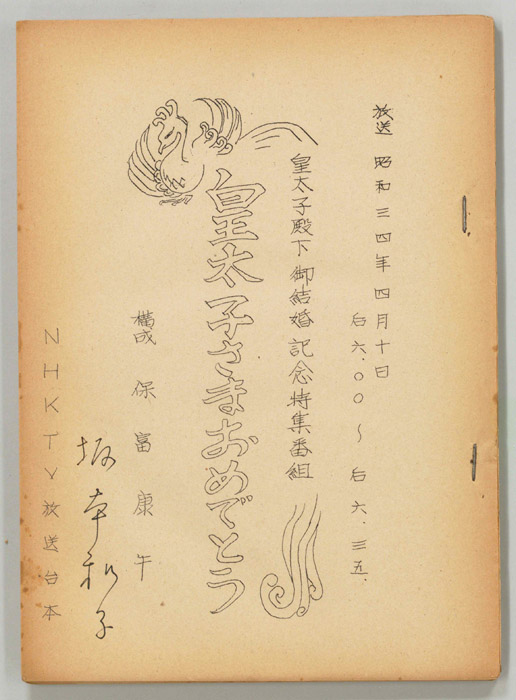 放送 昭和三四年四月十日
后六.〇〇～后六.三五.
皇太子殿下御結婚記念特集番組
皇太子さまおめでとう
構成 保富康午
坂本和子
NHKTV放送台本